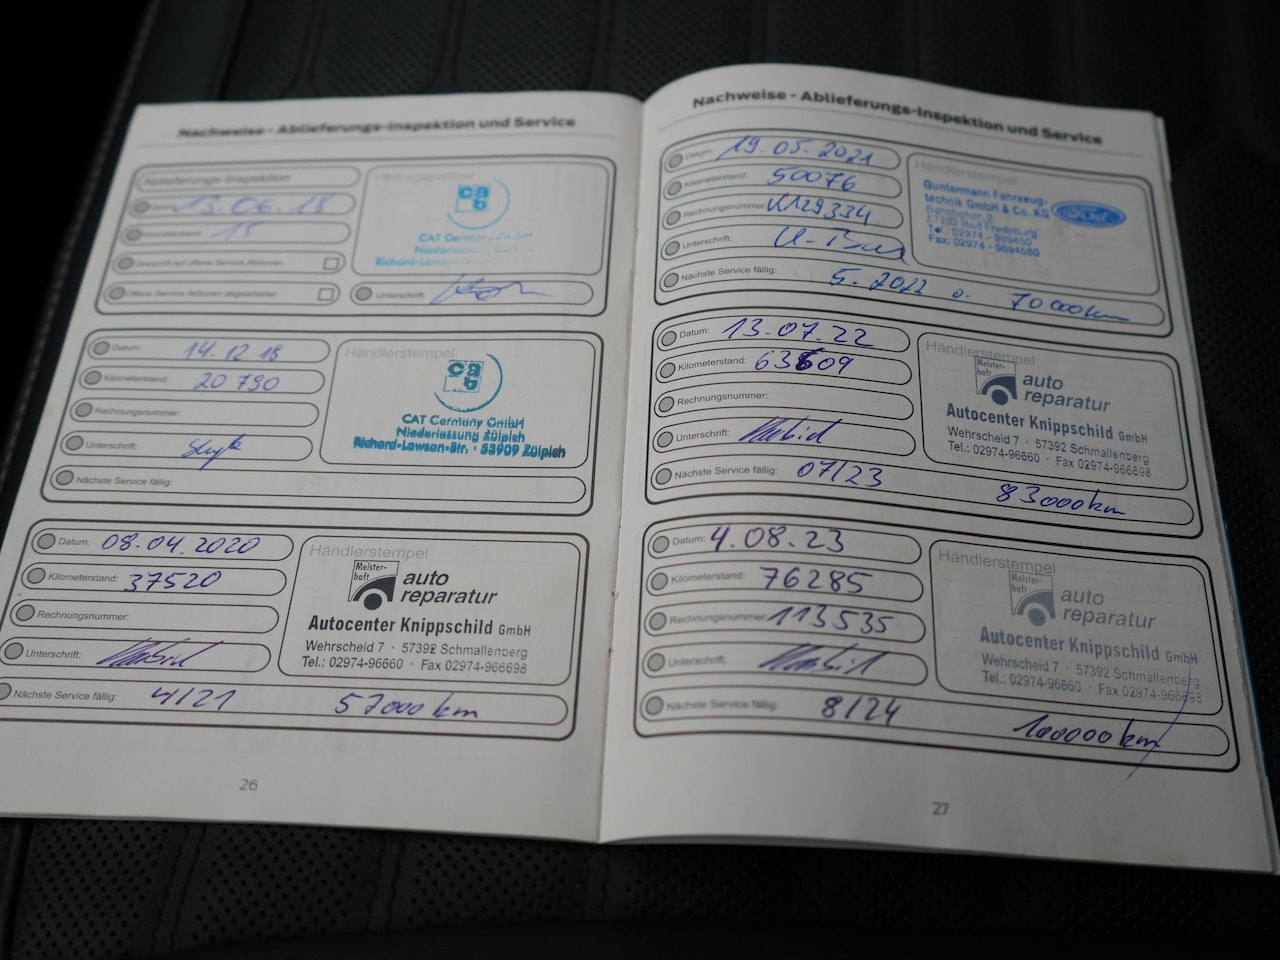 Nachweise - Ablieferungs-Inspektion und Service
Ablieferungs-Inspektion
13.06.18
15
Überprüft auf offene Service Aktionen:
Offene Service Aktionen abgearbeitet:
Vertragspartner
cab
CAT Germany GmbH
Niederlassung
Richard-Lawson
Unterschrift:
Datum: 14.12 18
Kilometerstand: 20 790
Rechnungsnummer:
Unterschrift:
Nächste Service fällig:
Händlerstempel
cab
CAT Germany GmbH
Niederlassung Zülpich
Richard-Lawson-Str. · 53909 Zülpich
Datum: 08.04.2020
Kilometerstand: 37520
Rechnungsnummer:
Unterschrift:
Nächste Service fällig: 4/21 57000 km
Händlerstempel
Meister-
haft
auto
reparatur
Autocenter Knippschild GmbH
Wehrscheid 7 · 57392 Schmallenberg
Tel.: 02974-96660 · Fax 02974-966698
26
Nachweise - Ablieferungs-Inspektion und Service
Datum: 19.05.2021
Kilometerstand: 50076
Rechnungsnummer:
Unterschrift:
Nächste Service fällig: 5.2022 o. 70000km
Händlerstempel
Guntermann Fahrzeug-
technik GmbH & Co. KG
Bahnhofstr. 2
57392 Bad Fredeburg
Tel.: 02974 - 969450
Fax: 02974 - 9694580
Ford
Datum: 13.07.22
Kilometerstand: 63609
Rechnungsnummer:
Unterschrift:
Nächste Service fällig: 07/23 83000km
Händlerstempel
Meister-
haft
auto
reparatur
Autocenter Knippschild GmbH
Wehrscheid 7 · 57392 Schmallenberg
Tel.: 02974-96660 · Fax 02974-966698
Datum: 4.08.23
Kilometerstand: 76285
Rechnungsnummer: 113535
Unterschrift:
Nächste Service fällig: 8/24 100000 km
Händlerstempel
Meister-
haft
auto
reparatur
Autocenter Knippschild GmbH
Wehrscheid 7 · 57392 Schmallenberg
Tel.: 02974-96660 · Fax 02974-966698
27